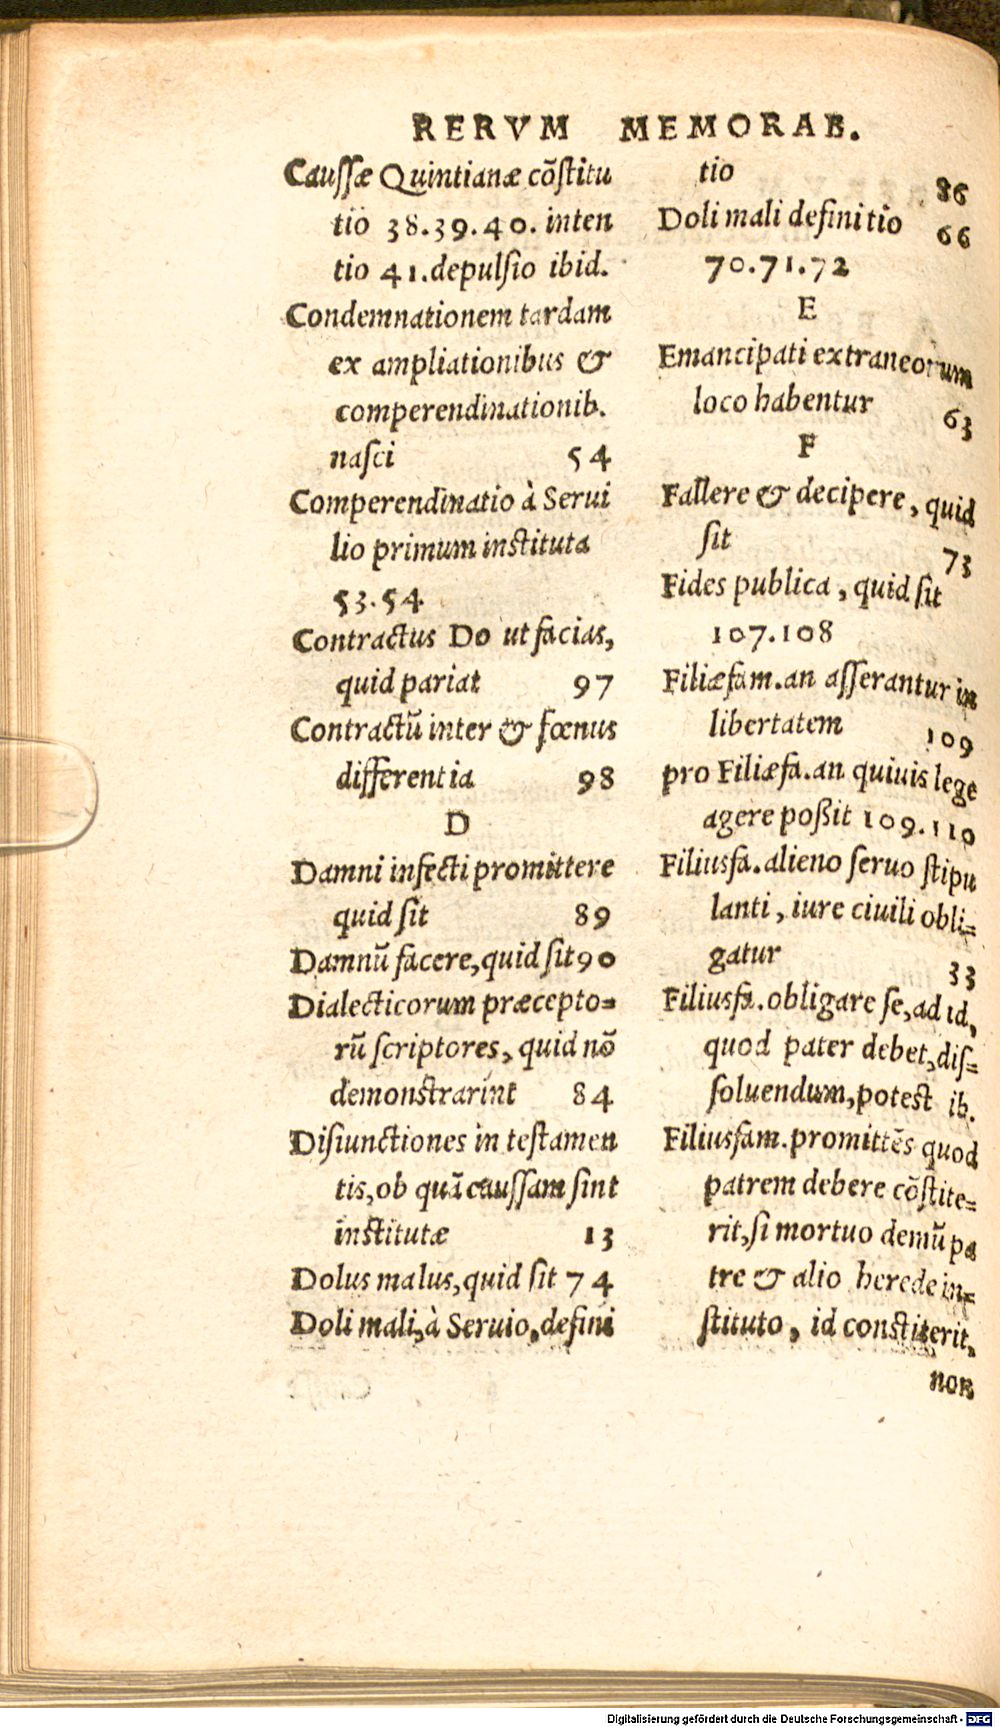 RERVM MEMORAB.
Cauſſæ Quintianæ cõſtitu
tio 38.39.40. inten
tio 41.depulſio ibid.
Condemnationem tardam
ex ampliationibus &
comperendinationib.
naſci 54
Comperendinatio à Serui
lio primum inſtituta
53.54
Contractus Do ut facias,
quid pariat 97
Contractũ inter & fœnus
differentia 98
D
Damni infecti promittere
quid ſit 89
Damnũ facere,quid ſit 90
Dialecticorum præcepto=
rũ ſcriptores, quid nõ
demonſtrarint 84
Diſiunctiones in teſtamen
tis,ob quã cauſſam ſint
inſtitutæ 13
Dolus malus,quid ſit 74
Doli mali,à Seruio,defini
tio 86
Doli mali definitio 66
70.71.72
E
Emancipati extraneorum
loco habentur 63
F
Fallere & decipere, quid
ſit 73
Fides publica, quid ſit
107.108
Filiæfam.an aſſerantur in
libertatem 109
pro Filiæfa.an quiuis lege
agere poßit 109.110
Filiusfa.alieno ſeruo ſtipu
lanti, iure ciuili obli=
gatur 33
Filiusfa.obligare ſe,ad id,
quod pater debet,diſ=
ſoluendum,poteſt ib.
Filiusfam.promittẽs quod
patrem debere cõſtite=
rit,ſi mortuo demũ pa
tre & alio herede in=
ſtituto, id conſtiterit,
non
Digitalisierung gefördert durch die Deutsche Forschungsgemeinschaft - DFG